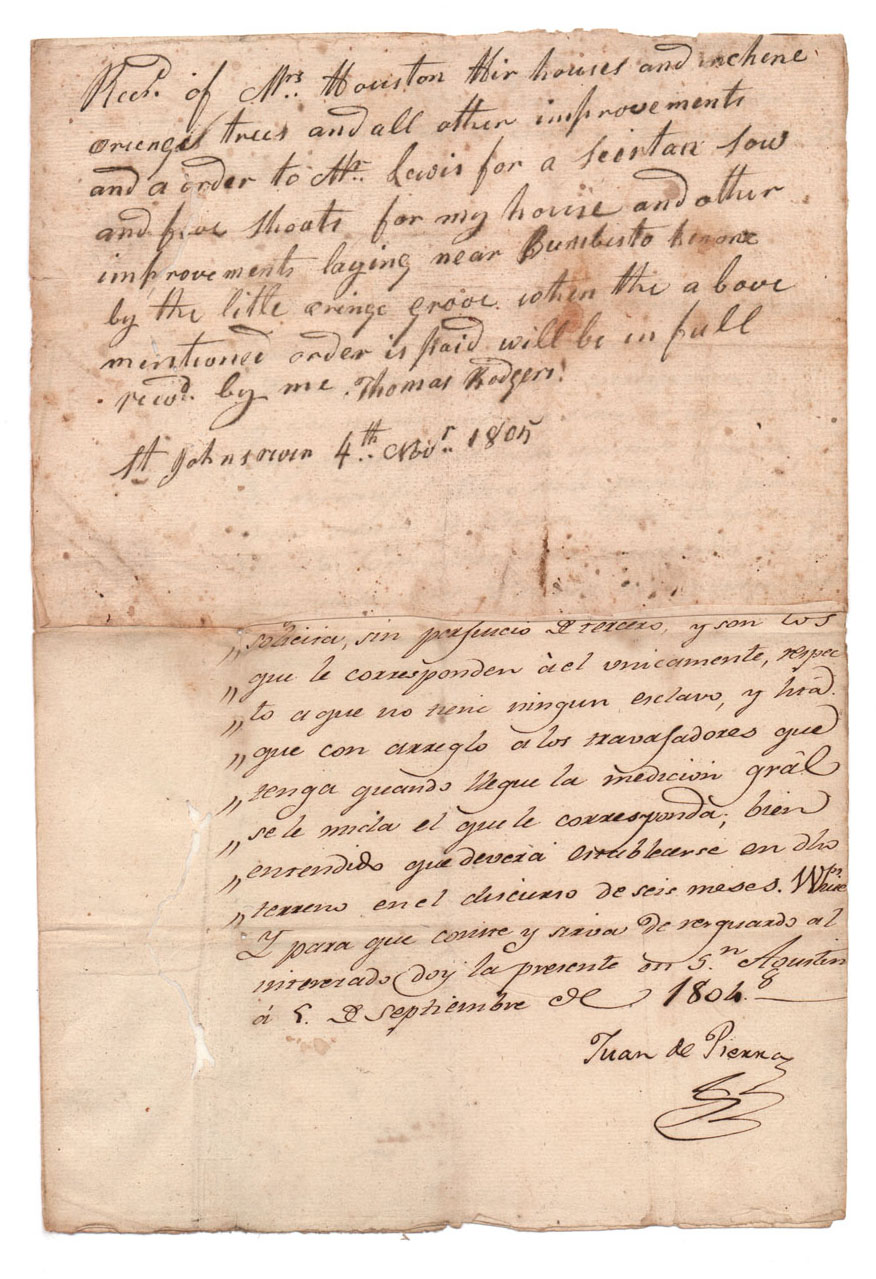 Recd. of Mrs. Houston Hir houses and
orienges trees and all other improvements
and a order to Mr. Lewis for a seirtan sow
and five shoats for my house and other
improvements laying near
by the litle oringe grove when the above
mentioned order is paid will be in full
recvd. by me Thomas Rodgers.
St Johns rever 4th. Novr. 1805
„ solicita, sin perjuicio de tercero, y son los
„ que le corresponden à el unicamente, respec
„ to a que no tiene ningun esclavo, y
„ que con arreglo a los travajadores que
„ tenga quando llegue la medicion grâl
„ se le mida el que le corresponda; bien
„ entendido que deverá establecerse en dho
„ terreno en el discurso de seis meses. White
Y para que conste y sirva de resguardo al
interezado doy la presente en Sn. Agustin
á 5. de Septiembre de 1804.
Juan de Pierra